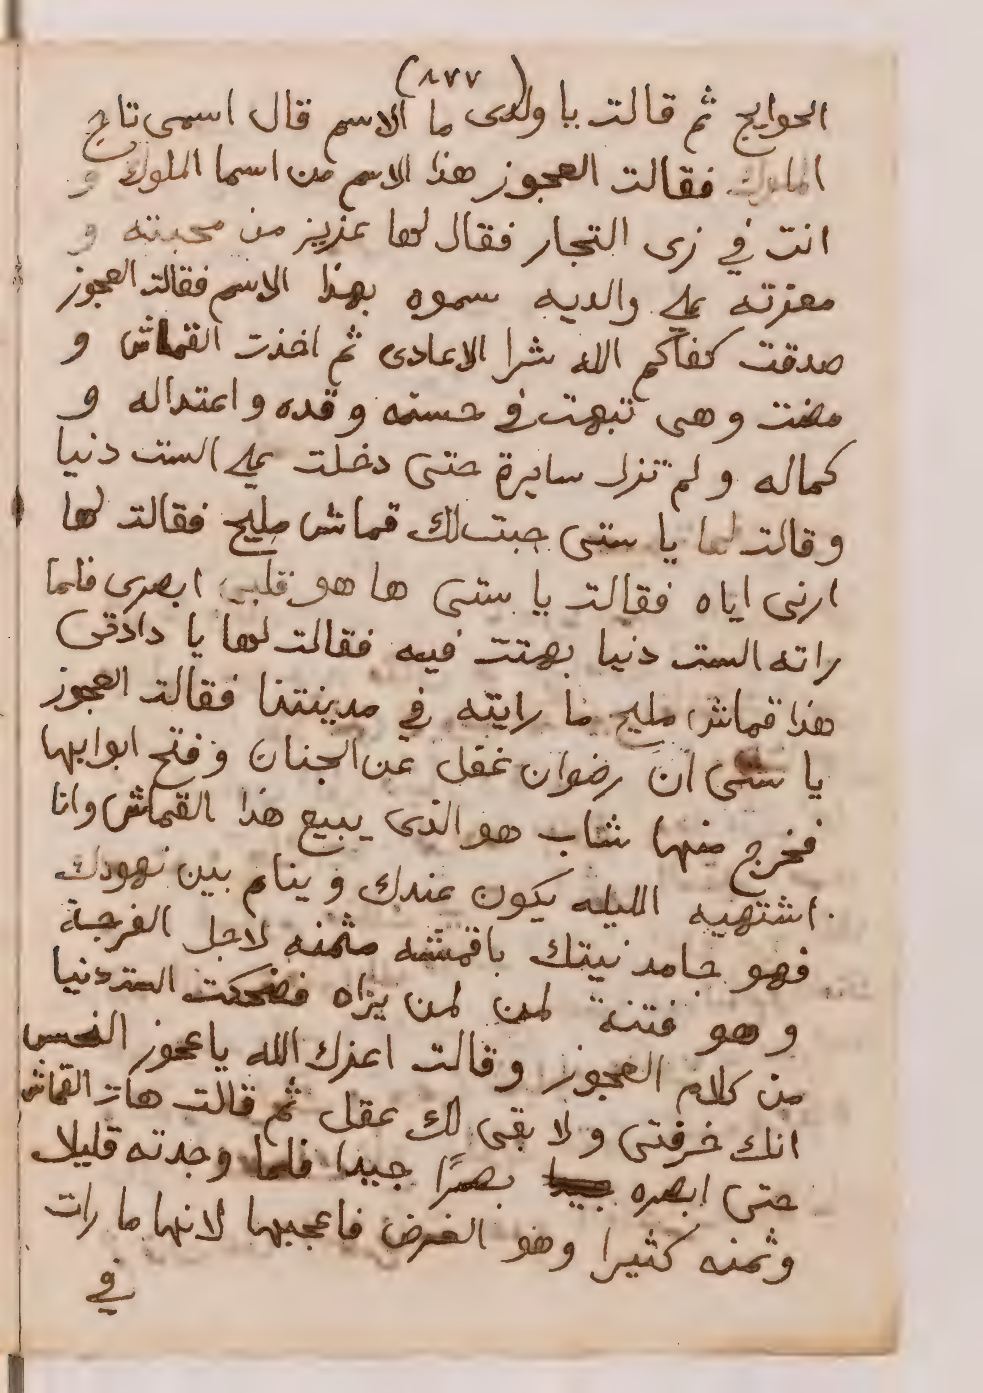 (٨٧٧)
الحوايج ثم قالت يا ولدى ما الاسم قال اسمى تاج
الملوك فقالت العجوز هذا الاسم من اسما الملوك و
انت في زى التجار فقال لها عزيز من محبته و
معزته على والديه سموه بهذا الاسم فقالت العجوز
صدقت كفاكم الله شرا الاعادى ثم اخذت القماش و
مضت وهى تبهت في حسنه وقده واعتداله و
كماله ولم تزل سايرة حتى دخلت على الست دنيا
وقالت لها يا ستى جبت لك قماش مليح فقالت لها
ارنى اياه فقالت يا ستى ها هو قلبى ابصرى فلما
راته الست دنيا بهتت فيه فقالت لها يا دادتى
هذا قماش مليح ما رايته في مدينتنا فقالت العجوز
يا ستى ان رضوان غفل عن الجنان وفتح ابوابها
فخرج منها شاب هو الذى يبيع هذا القماش وانا
اشتهيه الليله يكون عندك وينام بين نهودك
فهو جامد نيتك باقمشه مثمنه لاجل الفرجة
وهو فتنة لمن لمن يراه فضحكت الست دنيا
من كلام العجوز وقالت اعزك الله يا عجوز النحس
انك خرفتى ولا بقى لك عقل ثم قالت هات القماش
حتى ابصره بصرًا جيدا فلما وجدته قليلا
وثمنه كثيرا وهو الغرض فاعجبها لانها ما رات
في